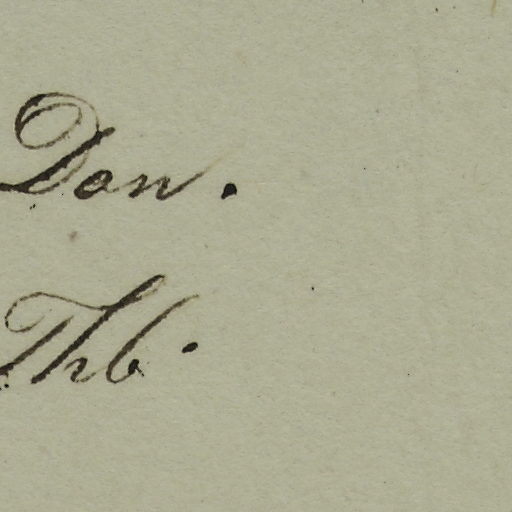 Don.
Thb.